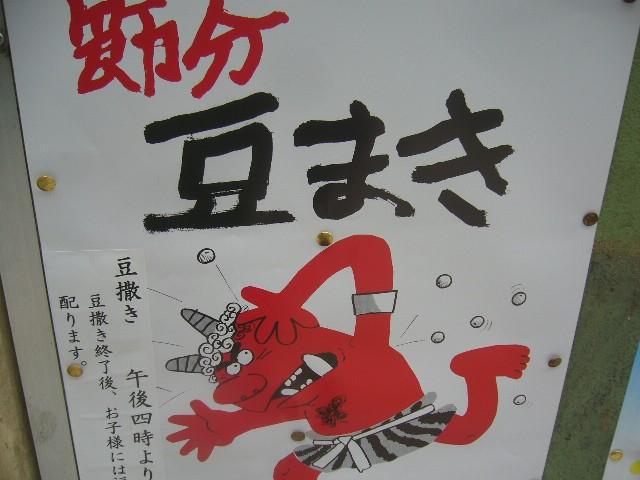 節分
豆まき
豆撒き 午後四時より
豆撒き終了後、お子様には
配ります。